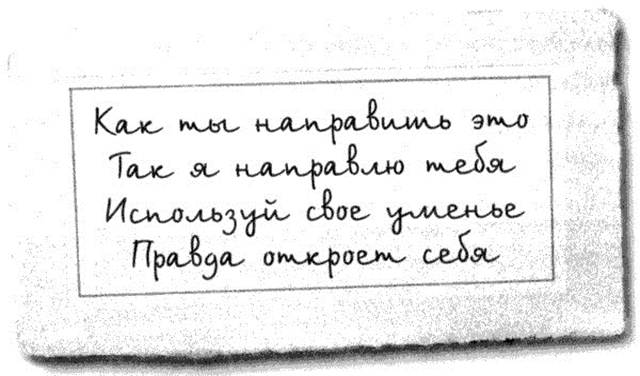 Как ты направишь это
Так я направлю тебя
Используй свое уменье
Правда откроет себя